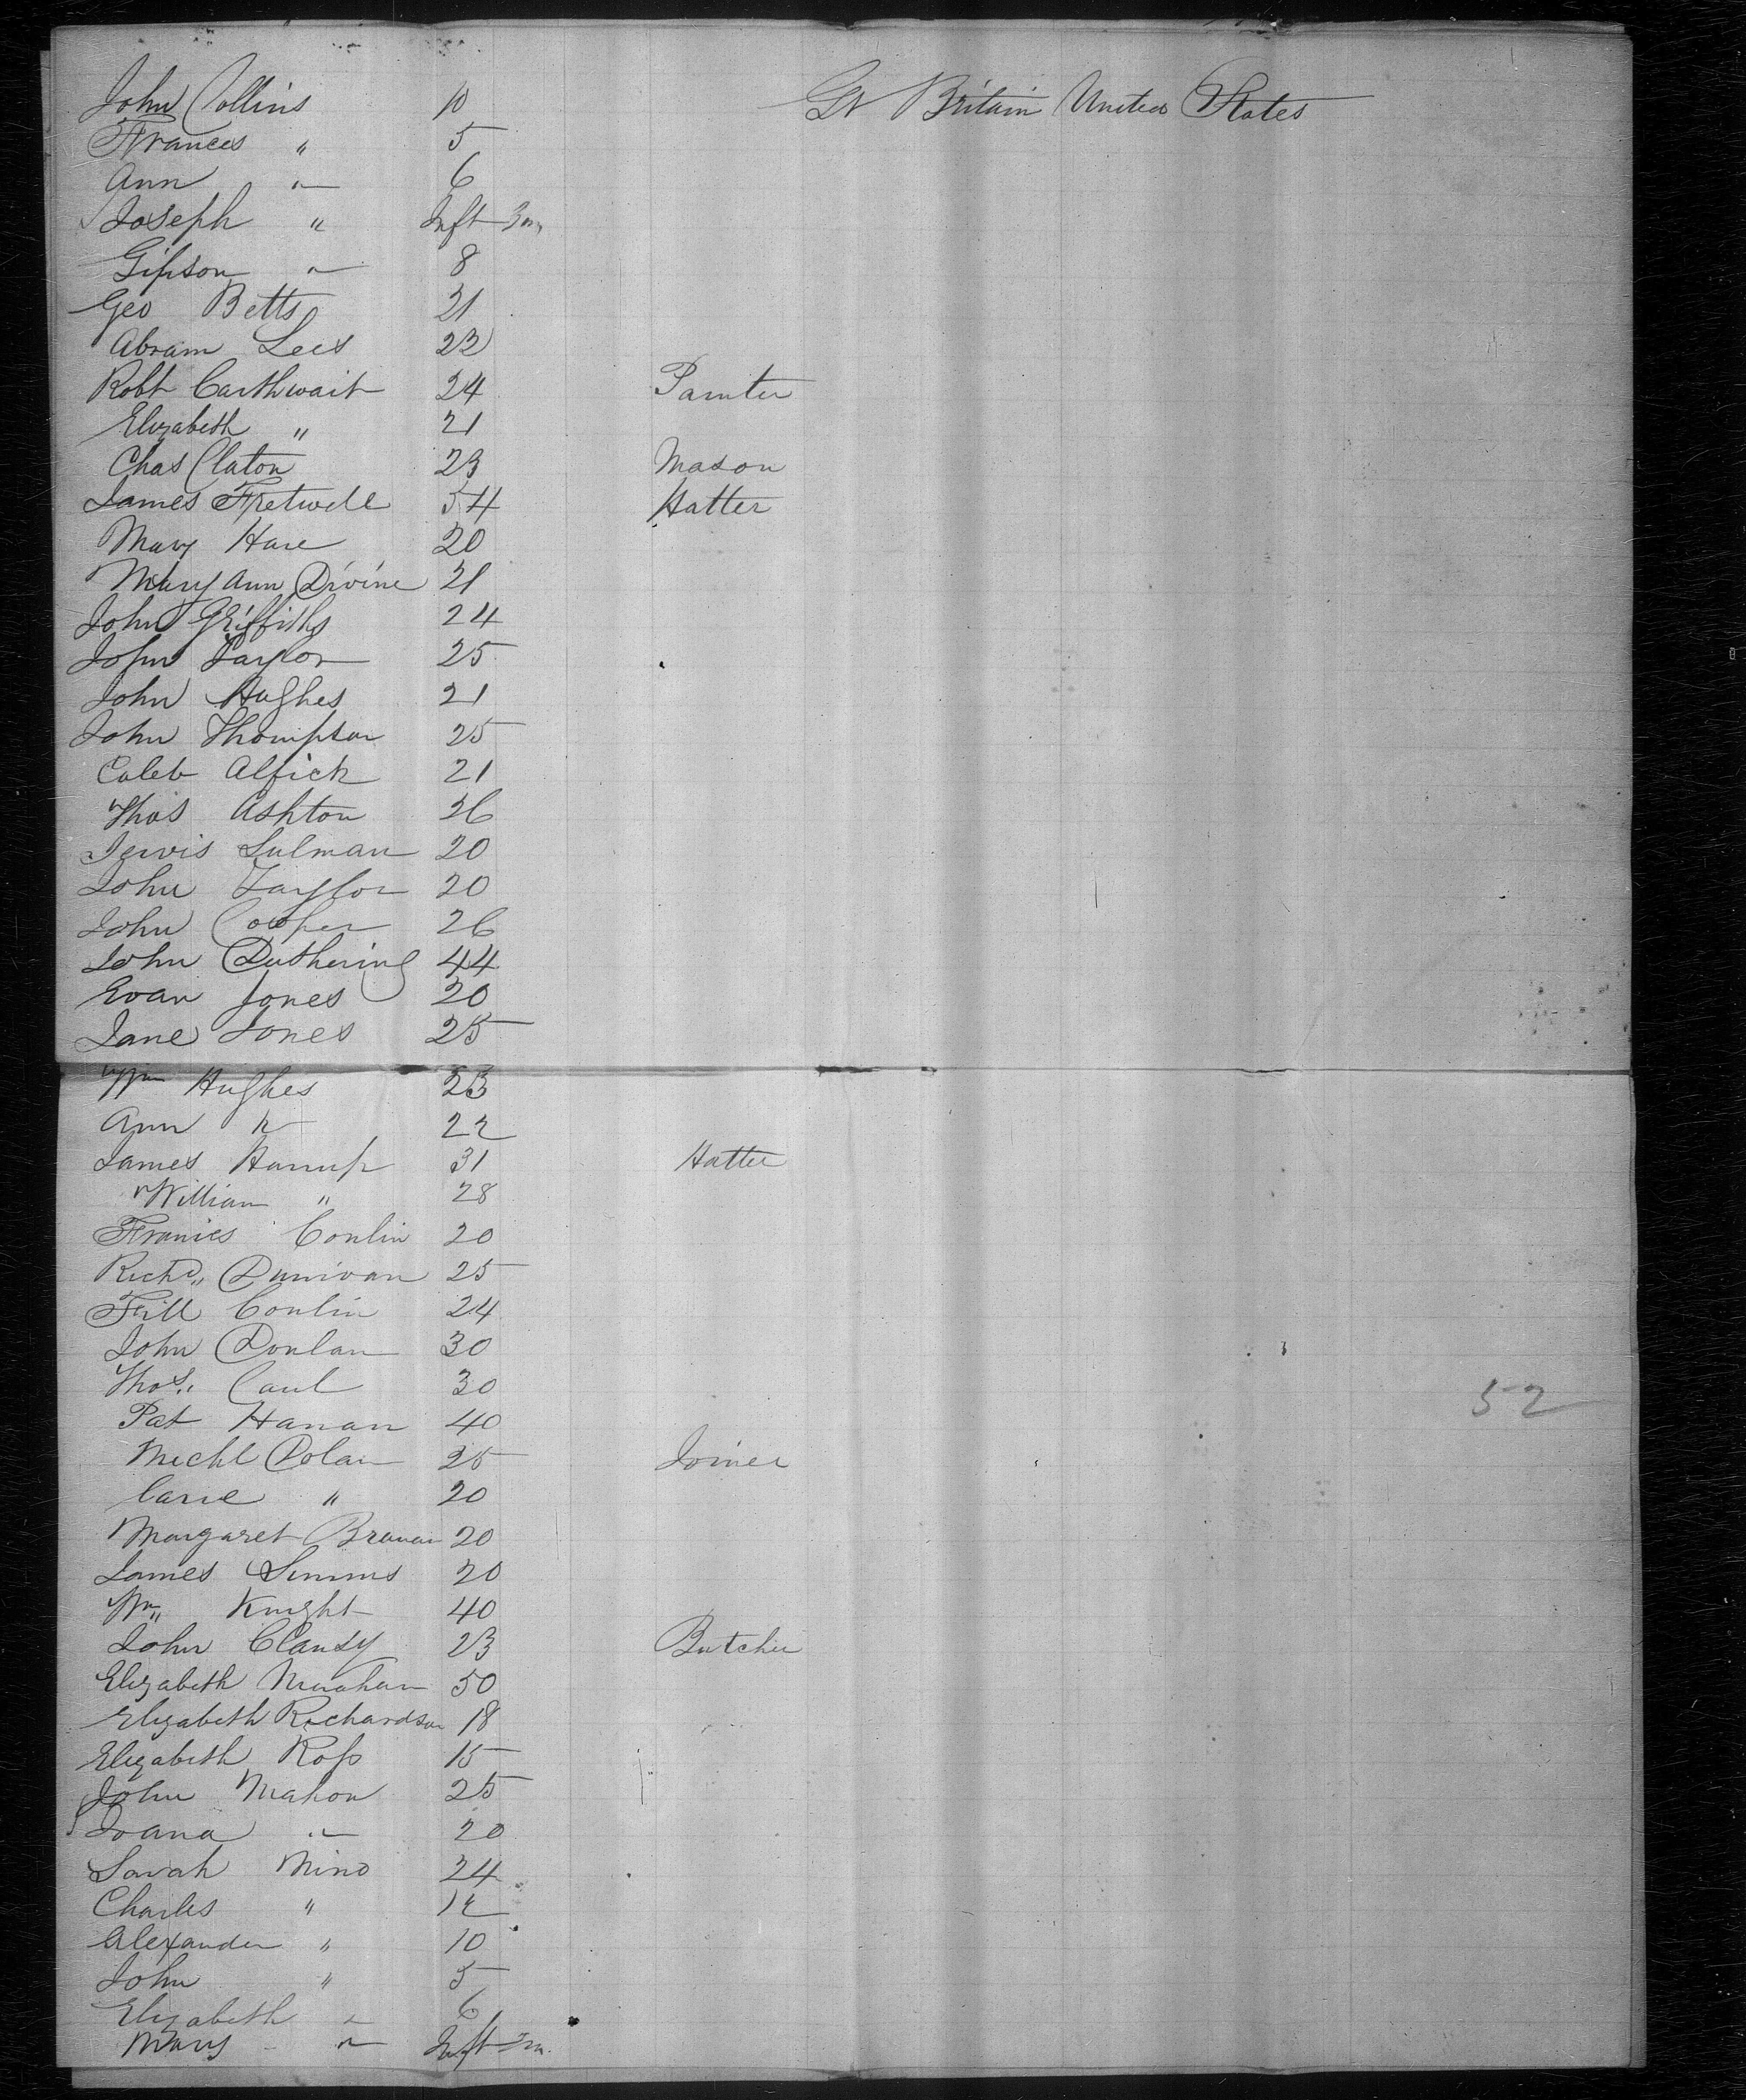 John Collins 10 Gt Britain United States
Frances " 5
Ann " 6
Joseph " Inft 3m
Gipson " 8
Geo Betts 21
Abram Lees 22
Robt Carthwait 24 Painter
Elizabeth " 21
Chas Claton 23 Mason
James Fretwell 54 Hatter
Mary Hare 20
Mary Ann Divine 21
John Griffiths 24
John Taylor 25
John Hughes 21
John Thompson 25
Caleb Alfick 21
Thos Ashton 26
Jervis Sulman 20
John Taylor 20
John Cooper 26
John Duthering 44
Evan Jones 20
Jane Jones 25
Wm Hughes 23
Ann " 22
James Harrup 31 Hatter
William " 28
Francis Conlin 20
Richd Dunivan 25
Fill Conlin 24
John Donlan 30
Thos Caul 30 52
Pat Hanan 40
Michl Dolan 25 Joiner
" 20
Margaret Branan 20
James Simms 20
Wm Knight 40
John Clansy 23 Butcher
Elizabeth 50
Elizabeth Richardson 18
Elizabeth Ross 15
John Mahon 25
Joana " 20
Sarah Mino 24
Charles " 12
Alexander " 10
John " 5
Elizabeth " 6
Mary " Inft 2m